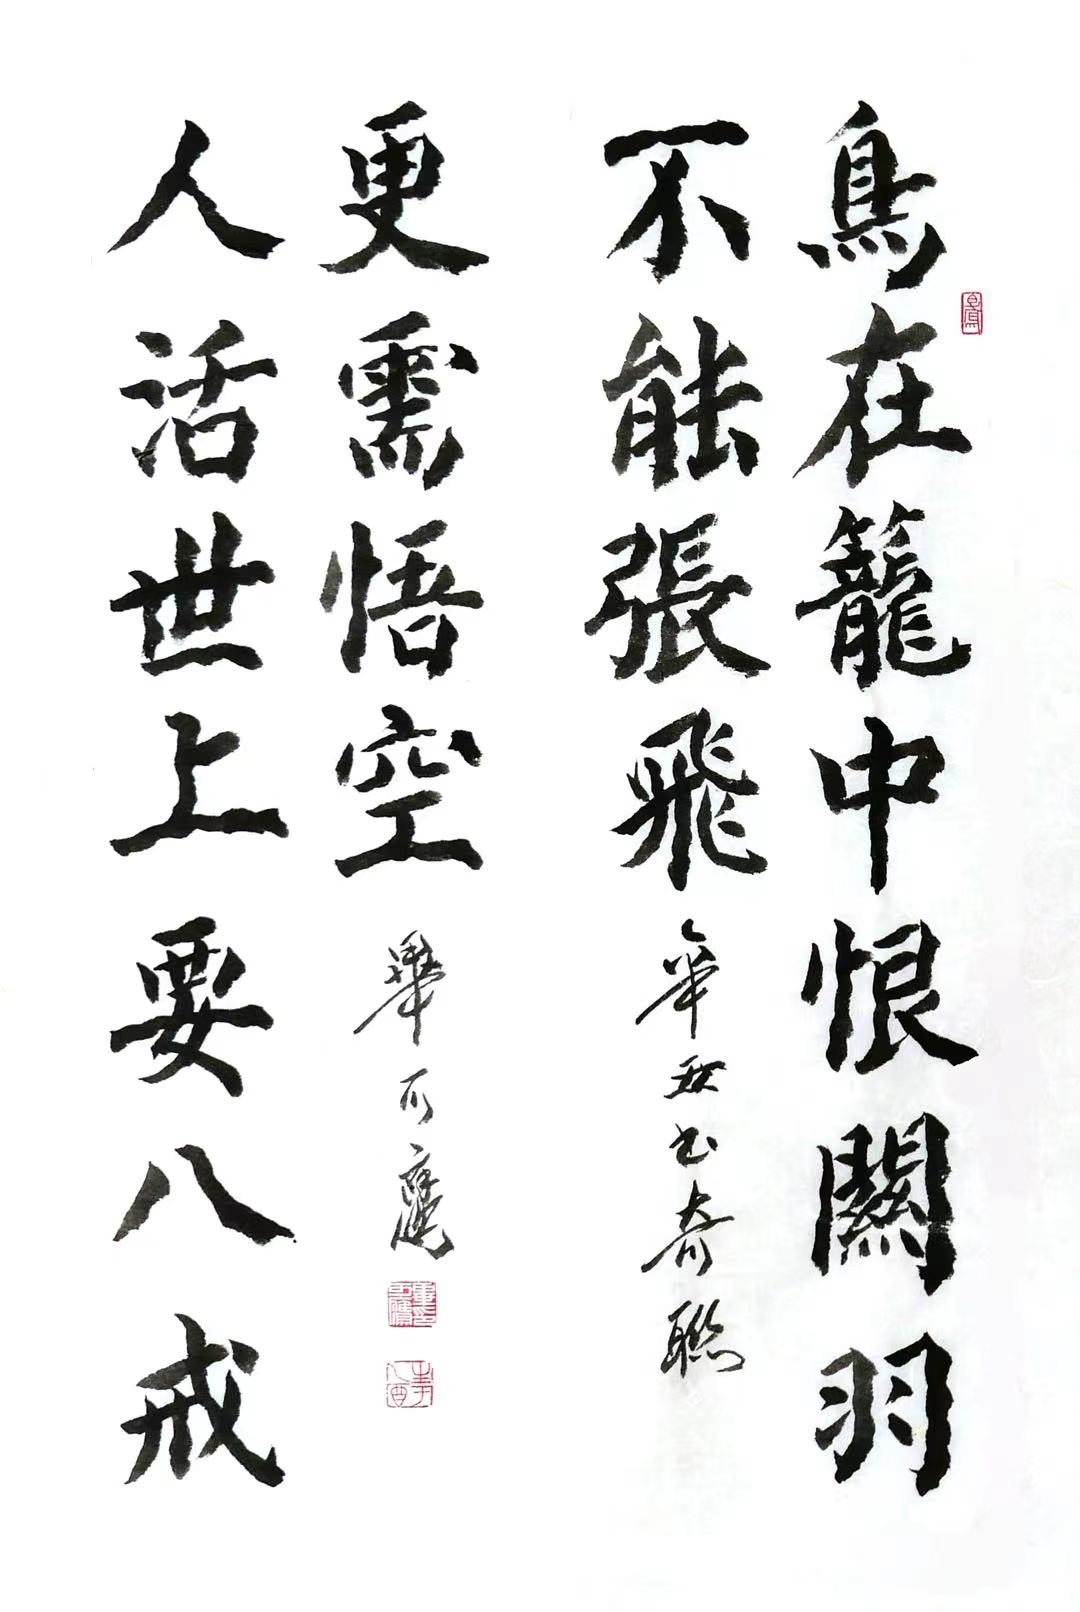 鳥在籠中恨關羽
不能張飛
辛秋书奇聯
人活世上要八戒
更需悟空
畢可鷹